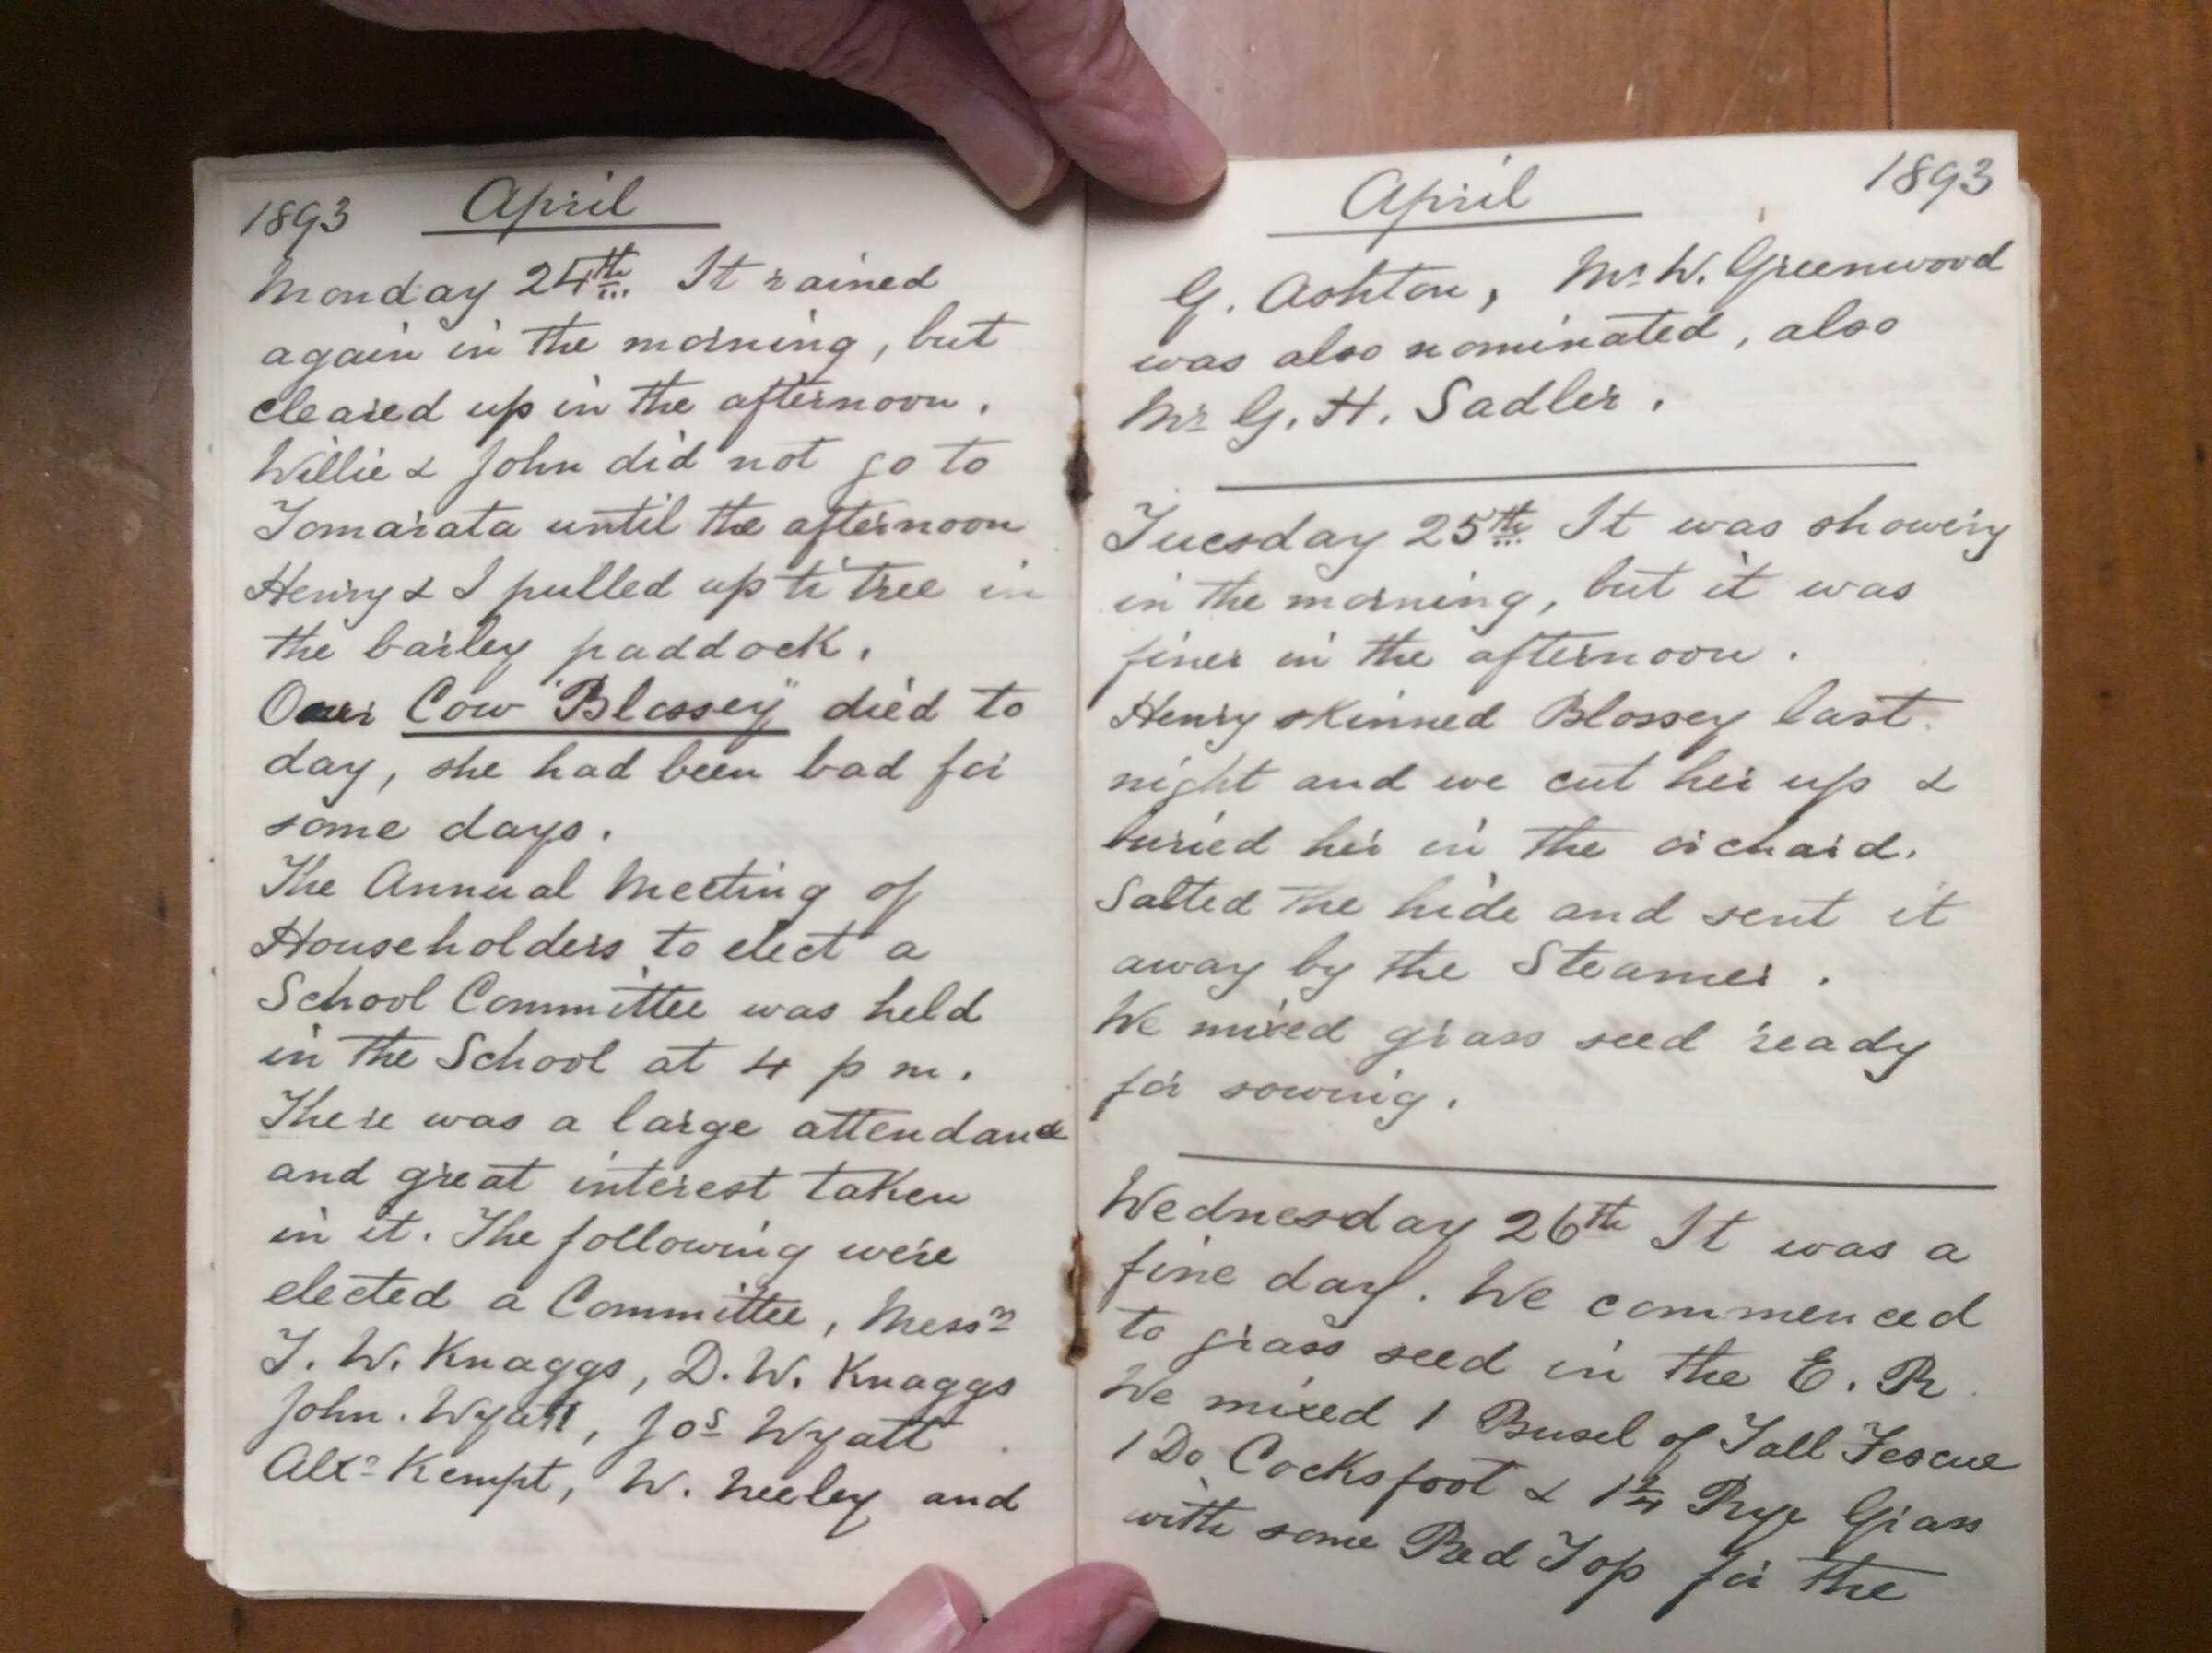 1893 April
Monday 24th It rained
again in the morning, but
cleared up in the afternoon.
Willie & John did not go to
Tomarata until the afternoon
Henry & I pulled up ti tree in
the barley paddock.
Our Cow "Blossey" died to
day, she had been bad for
some days.
The Annual Meeting of
Householders to elect a
School Committee was held
in the School at 4 p m.
There was a large attendance
and great interest taken
in it. The following were
elected a Committee, Messrs
T. W. Knaggs, D. W. Knaggs
John. Wyatt, Jos Wyatt
Alexr Kempt, W. Neeley and
April 1893
G. Ashton, Mr W. Greenwood
was also nominated, also
Mr G. H. Sadler.
Tuesday 25th It was showery
in the morning, but it was
finer in the afternoon.
Henry skinned Blossey last
night and we cut her up &
buried her in the orchard.
Salted the hide and sent it
away by the Steamer.
We mixed grass seed ready
for sowing.
Wednesday 26th It was a
fine day. We commenced
to grass seed in the E. R.
We mixed 1 Busel of Tall Fescue
1 Do Cocksfoot & 1 Rye Grass
with some Red Top for the